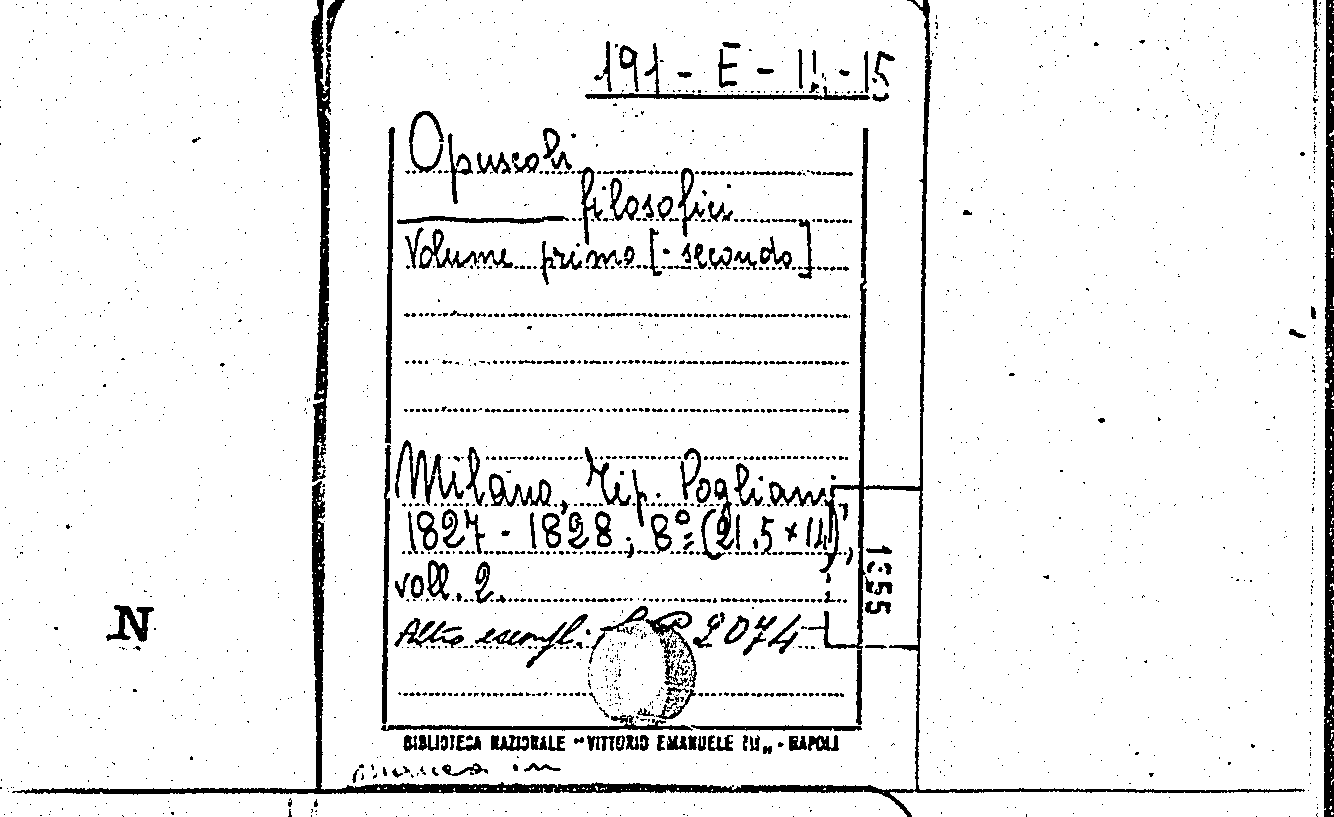 191 - E - 14 - 15
Opuscoli
filosofici
Volume primo [- secondo]
Milano, Tip. Pogliani,
1827 - 1828; 8º (21.5 x 14);
voll. 2.
1355
Altro esempl: 2074
N
BIBLIOTECA NAZIONALE "VITTORIO EMANUELE III" - NAPOLI
manca in